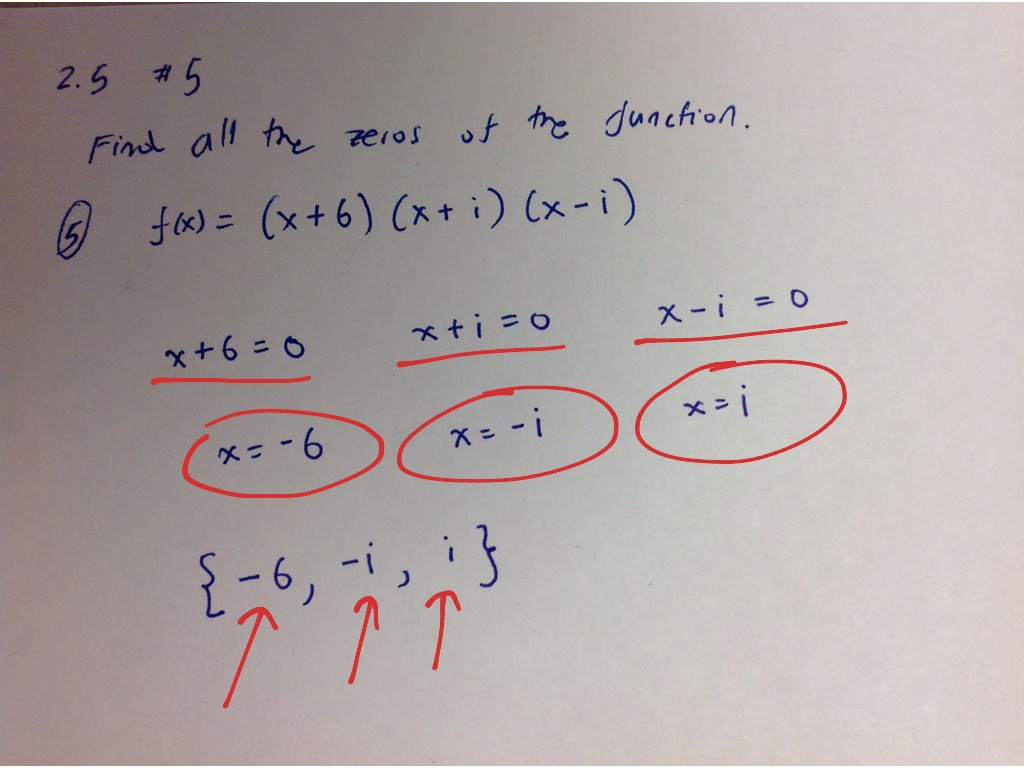 2.5 #5
Find all the zeros of the function.
⑤ f(x) = (x+6) (x+i) (x-i)
x+6=0 x+i=0 x-i=0
x=-6 x=-i x=i
{-6, -i, i}